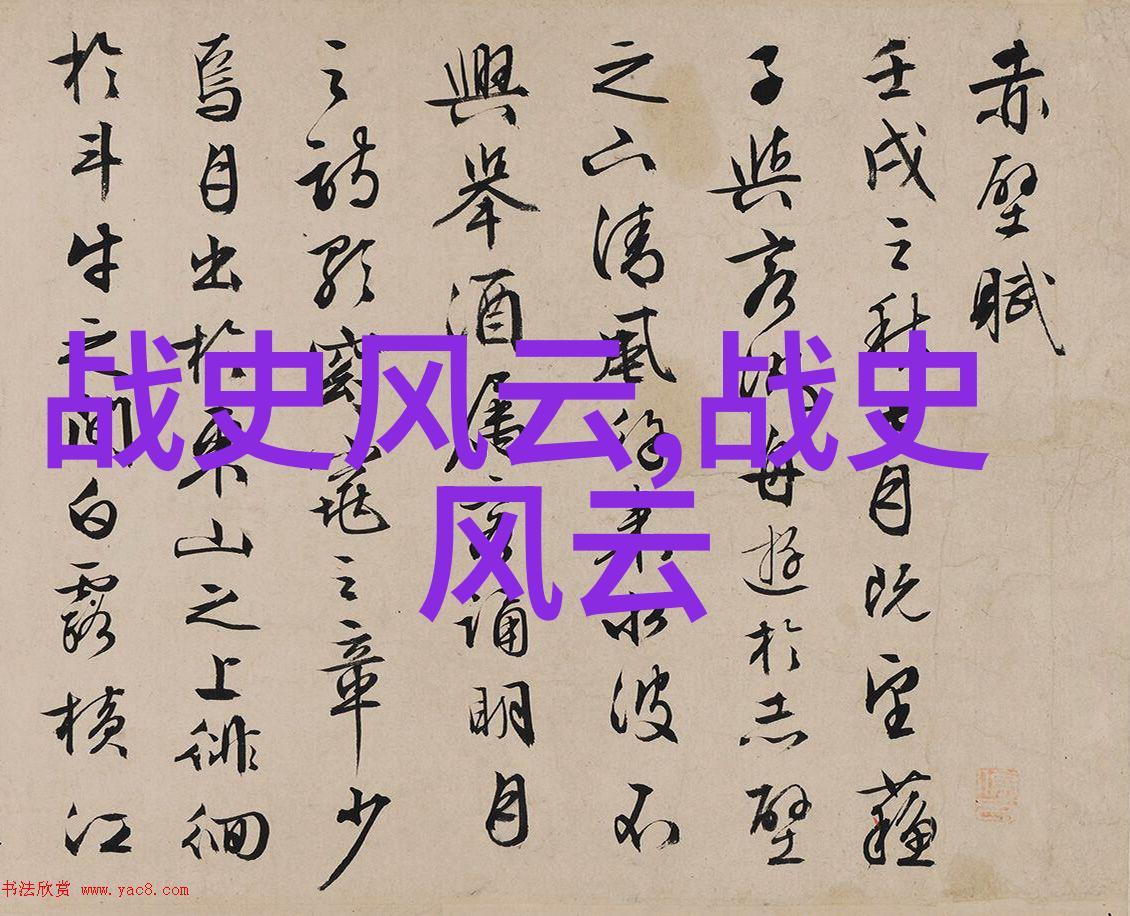 赤壁賦
壬戌之秋七月既望蘇
子與客泛舟遊於赤壁
之下清風徐來水波不
興舉酒屬客誦明月
之詩歌窈窕之章少
焉月出於東山之上徘徊
於斗牛之間白露橫江
战史风云,战史
风云
书法欣赏 www.yac8.com